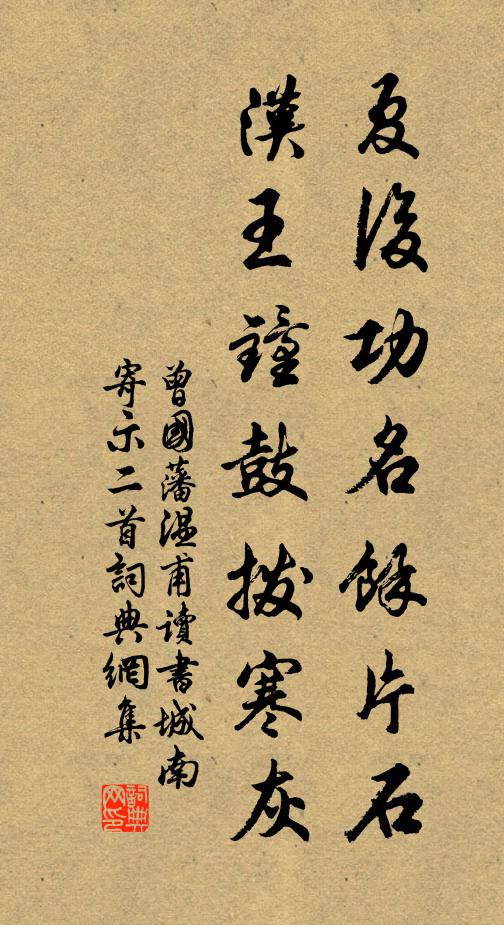 夏後功名餘片石
漢王鐘鼓撥寒灰
曾國藩溫甫讀書城南
寄示二首詞典網集
詞典
网印